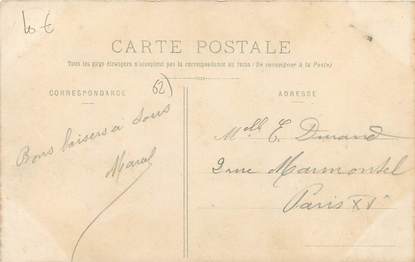 10 €
CARTE POSTALE
Tous les pays étrangers n'acceptent pas la correspondance au recto (Se renseigner à la Poste)
CORRESPONDANCE
62)
ADRESSE
Bons baisers à tous
Marcel
Mell E. Durand
2 rue Marmontel
Paris XVe